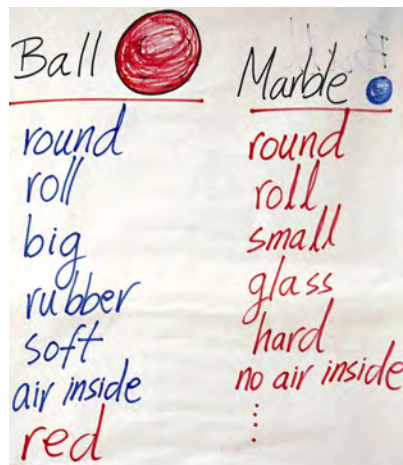 Ball
round
roll
big
rubber
soft
air inside
red
Marble
round
roll
small
glass
hard
no air inside
⋮